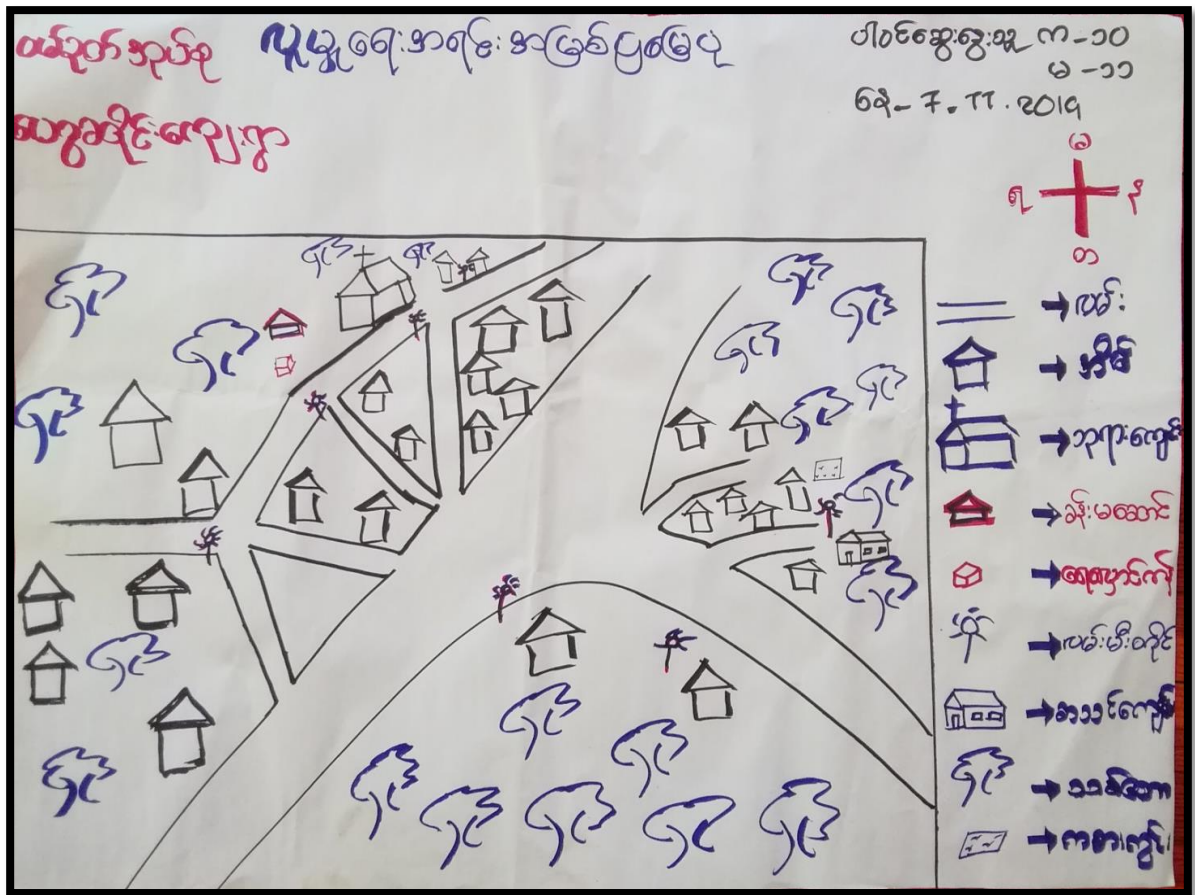 လူမှုရေးအရင်းအမြစ်ပြမြေပုံ
ပါဝင်ဆွေးနွေးသူ က-၁၀
မ-၁၁
နေ့- 7.11.2019
မ
ရ
န
တ
လမ်း
အိမ်
ဘုရားကျောင်း
ခန်းမဆောင်
ရေလှောင်ကန်
လမ်းမီးတိုင်
စာသင်ကျောင်း
သစ်တော
ကစားကွင်း